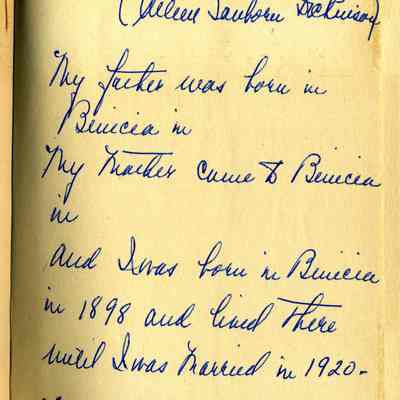 (Aileen Sanborn Dickinson)
My father was born in
Benicia in
My Mother came to Benicia
in
and I was born in Benicia
in 1898 and lived there
until I was Married in 1920-